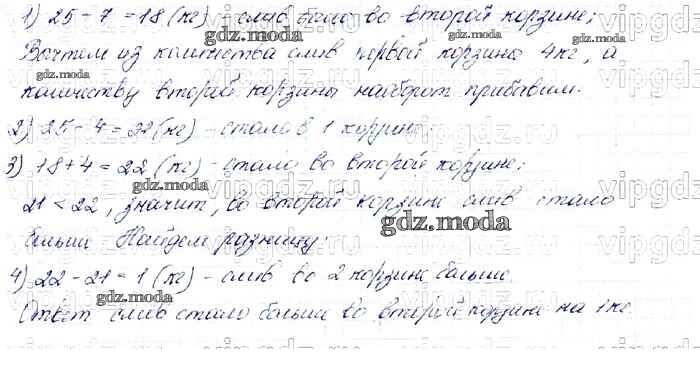 1) 25 - 7 = 18 (кг) - слив было во второй корзине;
Вычтем из количества слив первой корзины 4кг, а
количеству второй корзины наоборот прибавим.
2) 25 - 4 = 22 (кг) - стало в 1 корзине
3) 18 + 4 = 22 (кг) - стало во второй корзине;
21 < 22, значит, во второй корзине слив стало
больше Найдем разницу:
4) 22 - 21 = 1 (кг) - слив во 2 корзине больше
Ответ слив стало больше во второй корзине на 1 кг
gdz.moda
gdz.moda
gdz.moda
gdz.moda
gdz.moda
gdz.moda
gdz.moda
vipgdz.ru